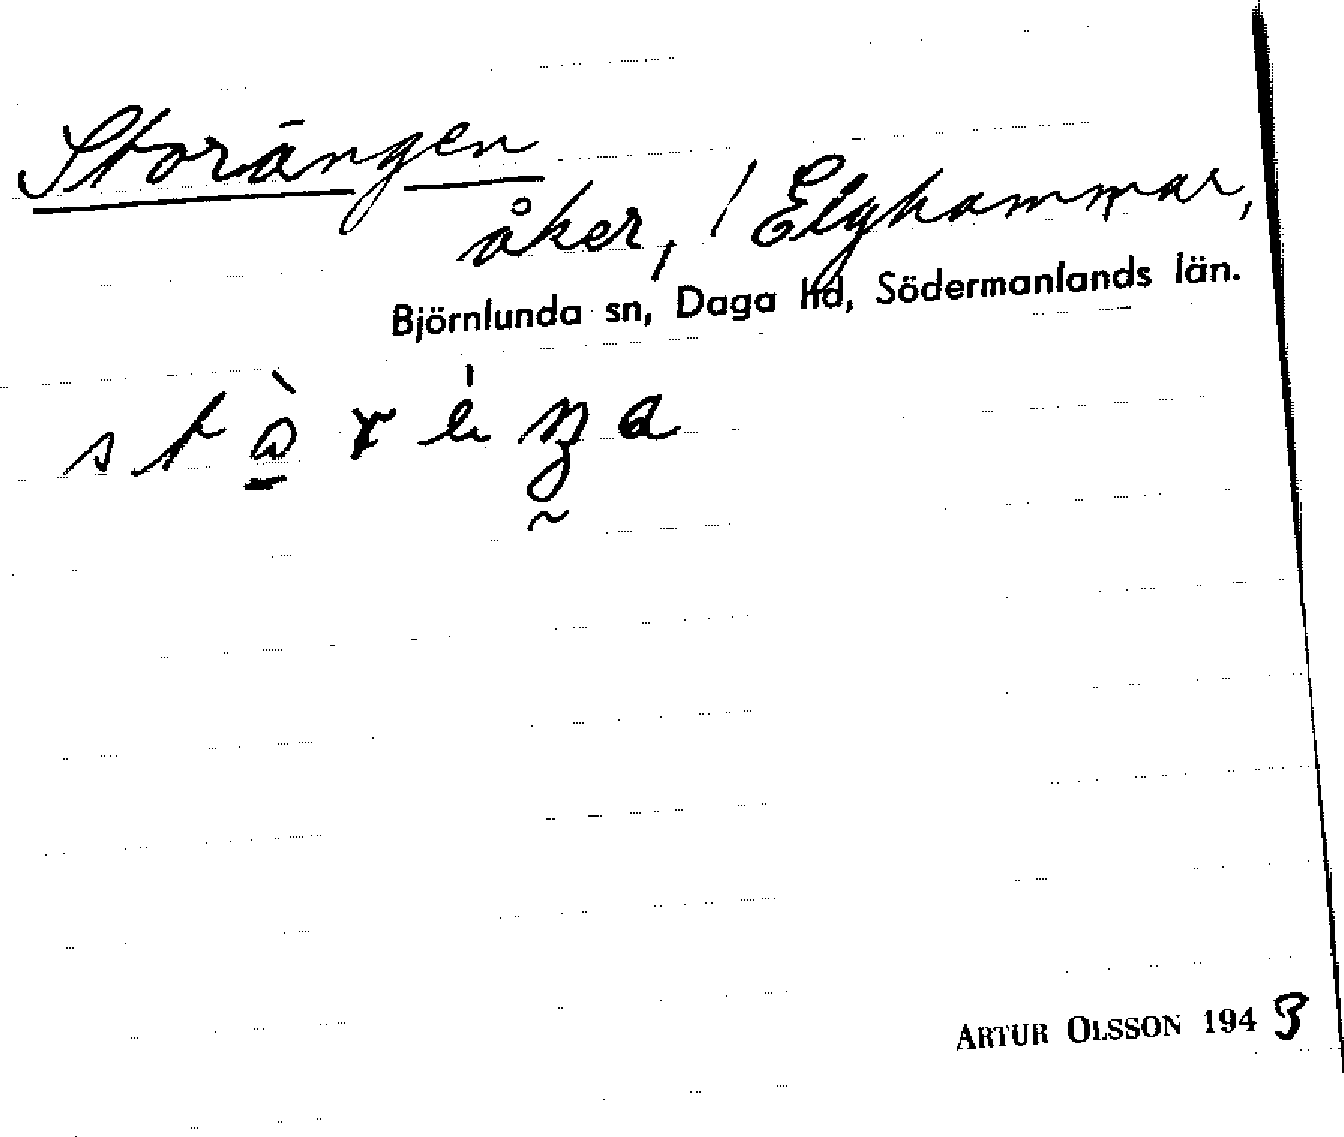 Storängen
åker, / Elghammar,
Björnlunda sn, Daga hd, Södermanlands län.
ARTUR OLSSON 1943